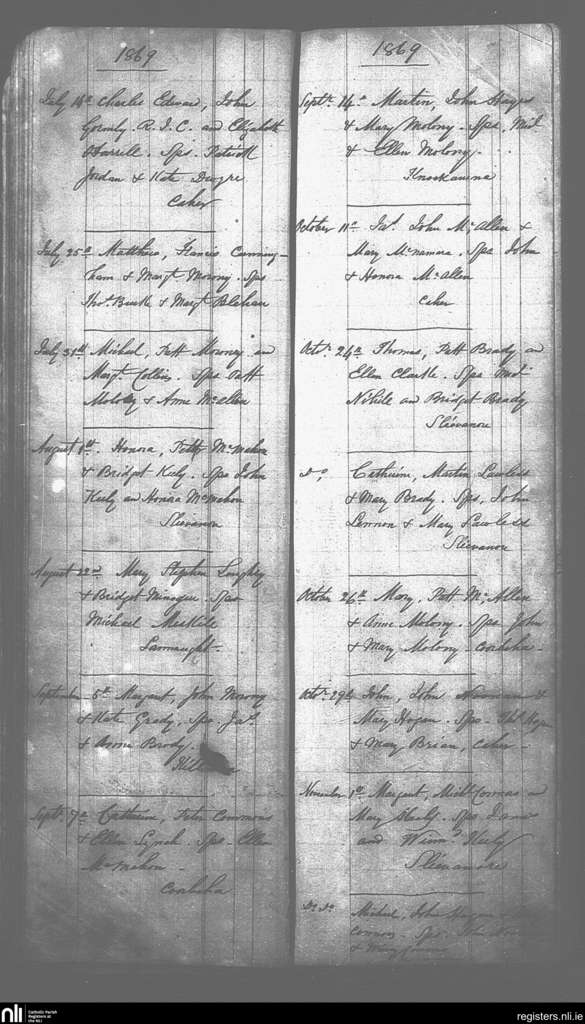 1869
July 18th Charles Edward, John
Gormly R.I.C. and Elizabeth
O'Farrell. Sps. Patrick
Jordan & Kate Dwyre
Caher
July 25th Matthew, Francis Cunning-
ham & Margt Morony. Sps
Thos. Burke & Margt Blehan
July 31st Michael, Patt Morony an
Margt. Collins. Sps Patt
Molony & Anne McAllen
August 1st. Honora, Patt McMahon
& Bridget Kiely. Sps John
Kiely an Honora McMahon
Slievanore
August 22nd Mary Stephen
& Bridget Minogue. Sps
Michael Meskile
September 5th Margaret, John Morony
& Kate Grady, Sps, Jas.
& Anne Brody.
Septr. 7th Catherine, Peter Commons
& Ellen Lynch. Sps - Ellen
McMahon -
Corlicka
1869
Septr. 14th Martin, John Hayes
& Mary Molony. Sps, Mil
& Ellen Molony.
October 11th Jas. John McAllen &
Mary McNamara. Sps John
& Honora McAllen
Caher
Octr. 24th Thomas, Patt Brady an
Ellen Clarke. Sps
an Bridget Brady
Slievanore
Do, Catherine, Martin Lawless
& Mary Brady. Sps, John
Lennon & Mary Lawless
Slievanore
October 26th Mary. Patt McAllen
& Anne Molony. Sps John
& Mary Molony -
Octr. 29th John, John Noonan &
Mary Hogan. Sps -
& Mary Brian, Caher -
November 1st Margaret, Mill Connors an
Mary Healy. Sps
and
Slievanore
Do. Do Michael, John
Connors Sps.
& Mary
nli
Catholic Parish
Registers at
the NLI
registers.nli.ie